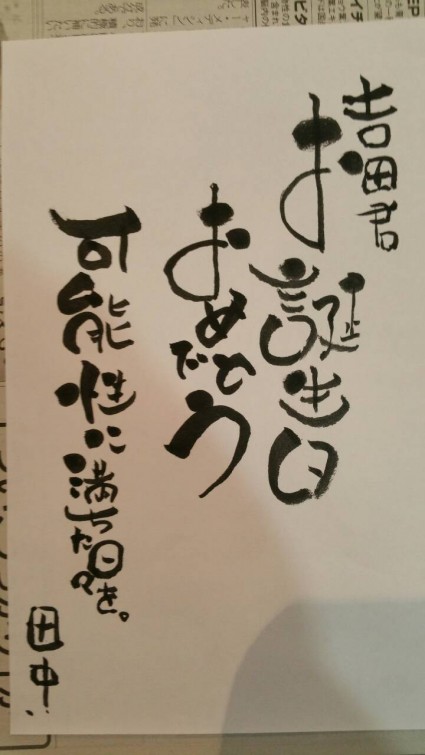 吉田君
お誕生日
おめでとう
可能性に満ちた日々を。
田中